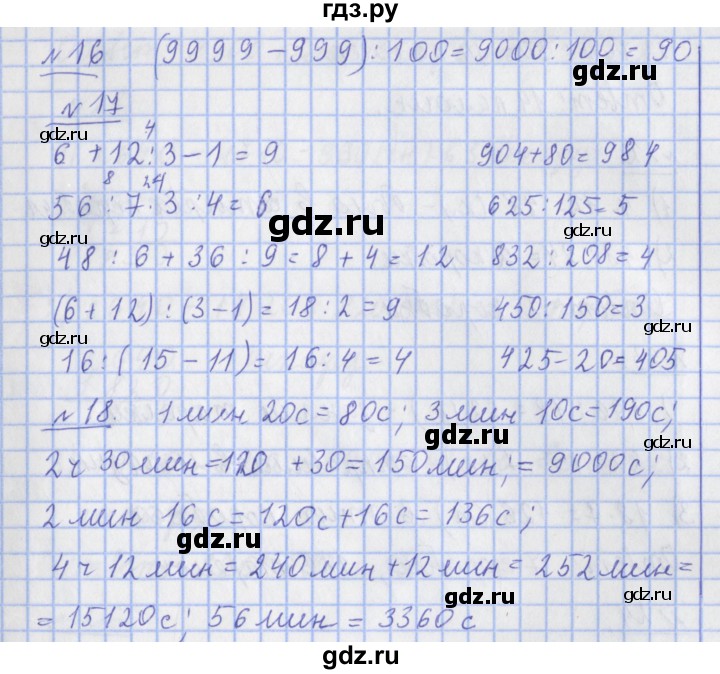 гдз.ру
№16 (9999-999):100=9000:100=90
gdz.ru
№17
gdz.ru
4
6 +12:3-1=9 904+80=984
gdz.ru
8 24
56:7·3:4=6 625:125=5
gdz.ru
gdz.ru
gdz.ru
48:6+36:9=8+4=12 832:208=4
(6+12):(3-1)=18:2=9 450:150=3
gdz.ru
gdz.ru
16:(15-11)=16:4=4 425-20=405
№18. 1 мин 20с=80с; 3 мин 10с=190с;
gdz.ru
2ч 30мин=120 +30=150мин;=9000с;
gdz.ru
2 мин 16с=120с+16с=136с;
gdz.ru
4ч 12мин=240мин+12мин=252мин=
gdz.ru
gdz.ru
=15120с; 56мин=3360с
gdz.ru